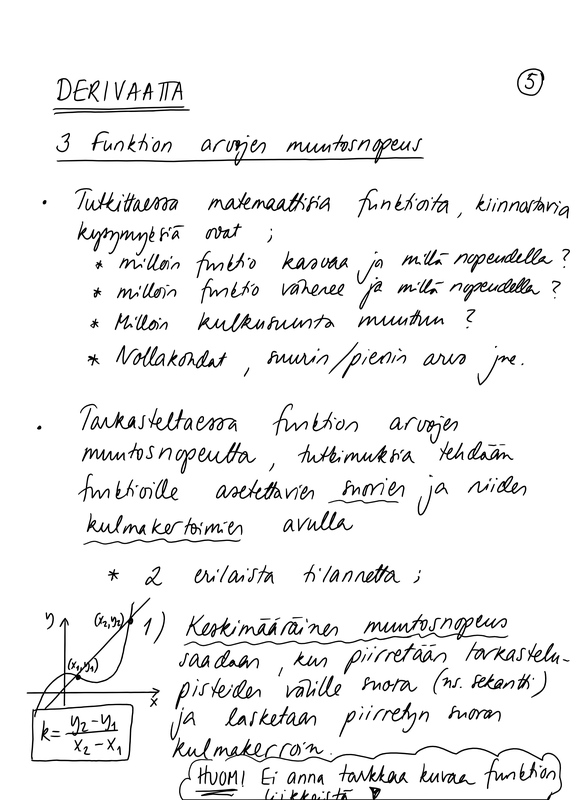 DERIVAATTA
5
3 Funktion arvojen muutosnopeus
• Tutkittaessa matemaattisia funktioita, kiinnostavia
kysymyksiä ovat ;
* milloin funktio kasvaa ja millä nopeudella ?
* milloin funktio vähenee ja millä nopeudella ?
* Milloin kulkusuunta muuttuu ?
* Nollakohdat, suurin/pienin arvo jne.
• Tarkasteltaessa funktion arvojen
muutosnopeutta, tutkimuksia tehdään
funktioille asetettavien suorien ja niiden
kulmakertoimien avulla
* 2 erilaista tilannetta ;
y
(x₂,y₂)
(x₁,y₁)
x
k = y₂-y₁ / x₂-x₁
1) Keskimääräinen muutosnopeus
saadaan, kun piirretään tarkastelu-
pisteiden välille suora (ns. sekantti)
ja lasketaan piirretyn suoran
kulmakerroin.
HUOM! Ei anna tarkkaa kuvaa funktion
liikkeistä